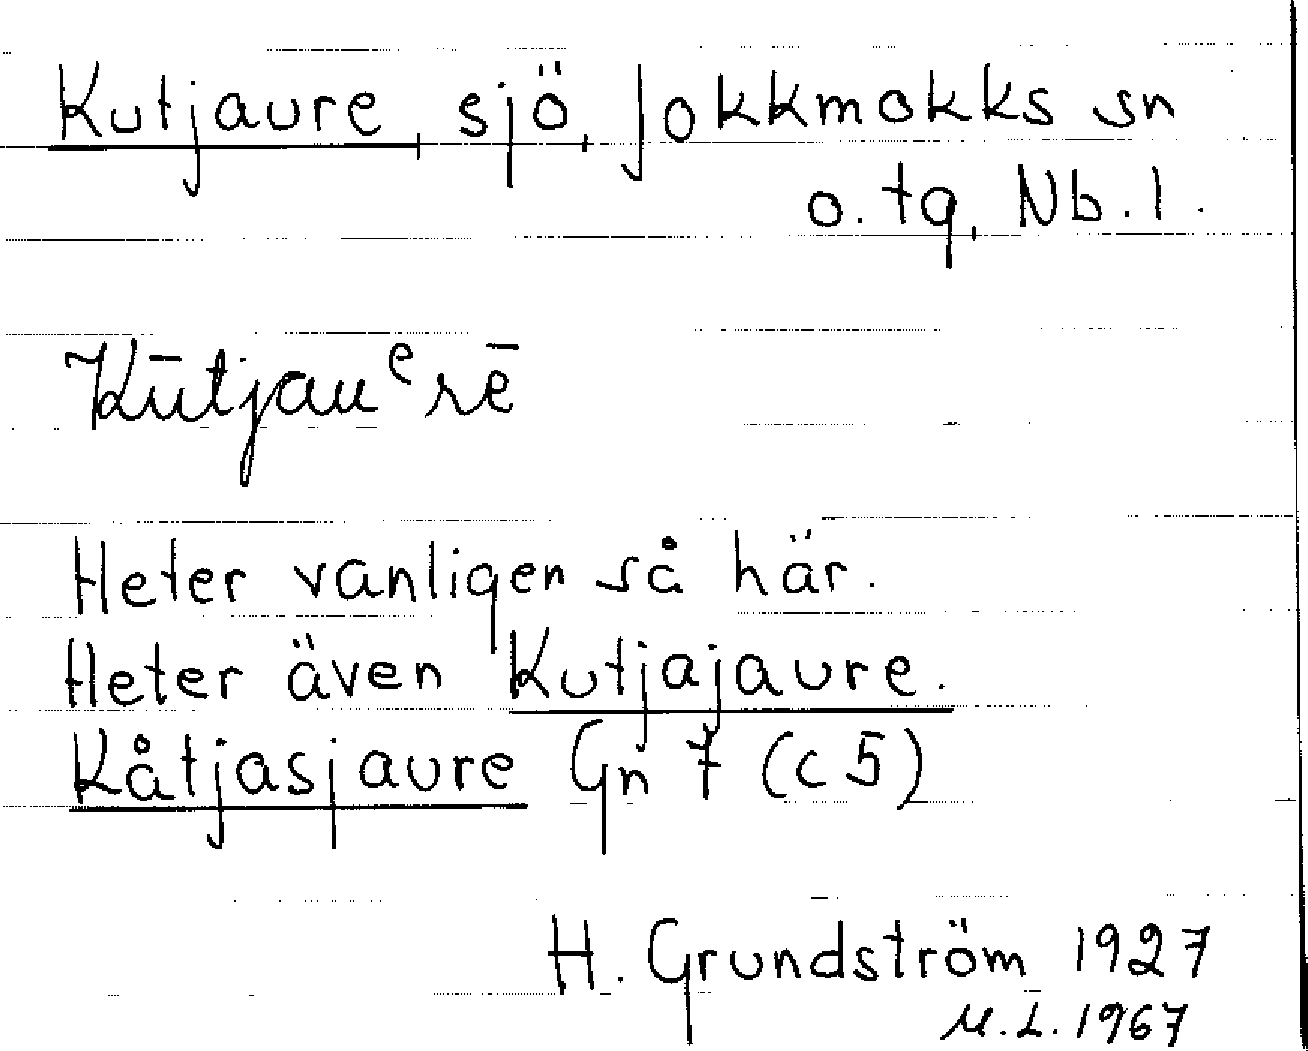 Kutjaure, sjö, Jokkmokks sn
o. tg, Nb. l.
Kūtjauᵉrē
Heter vanligen så här.
Heter även Kutjajaure.
Kåtjasjaure Gn 7 (c 5)
H. Grundström 1927
M.L. 1967